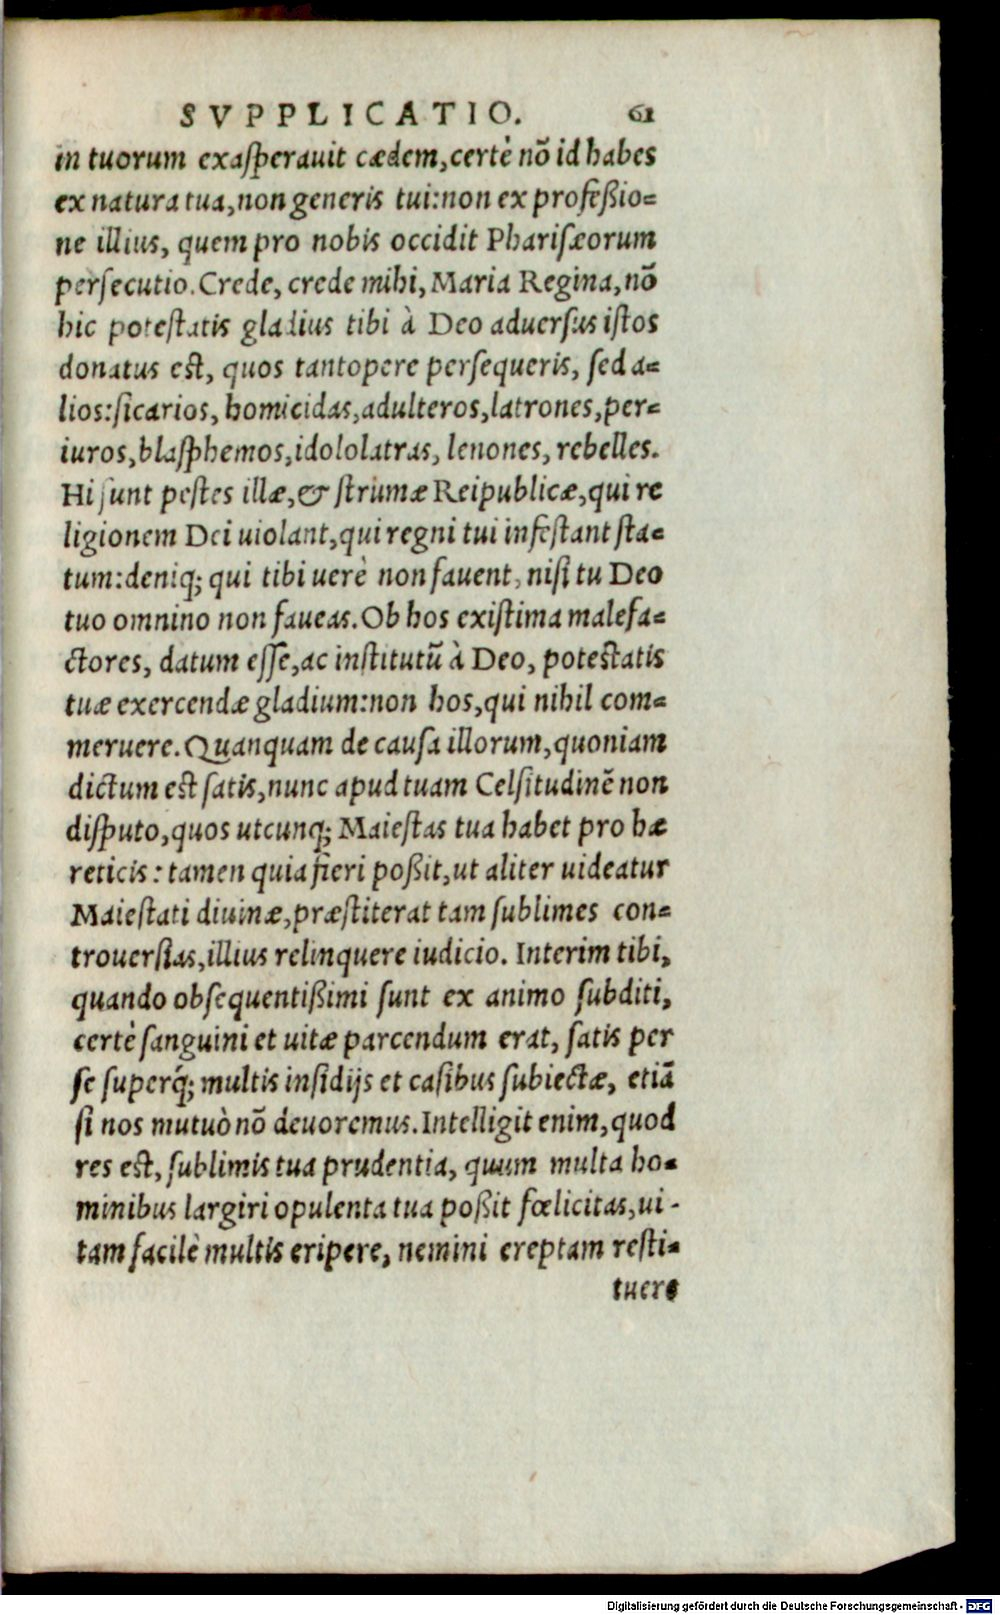 SVPPLICATIO. 61
in tuorum exaſperauit cædem, certè nõ id habes
ex natura tua, non generis tui: non ex profeßio=
ne illius, quem pro nobis occidit Phariſæorum
perſecutio. Crede, crede mihi, Maria Regina, nõ
hic poteſtatis gladius tibi à Deo aduerſus iſtos
donatus eſt, quos tantopere perſequeris, ſed a=
lios: ſicarios, homicidas, adulteros, latrones, per=
iuros, blaſphemos, idololatras, lenones, rebelles.
Hi ſunt peſtes illæ, & ſtrumæ Reipublicæ, qui re
ligionem Dei uiolant, qui regni tui infeſtant ſta=
tum: deniq; qui tibi uerè non fauent, niſi tu Deo
tuo omnino non faueas. Ob hos exiſtima malefa=
ctores, datum eſſe, ac inſtitutũ à Deo, poteſtatis
tuæ exercendæ gladium: non hos, qui nihil com=
meruere. Quanquam de cauſa illorum, quoniam
dictum eſt ſatis, nunc apud tuam Celſitudinẽ non
diſputo, quos utcunq; Maieſtas tua habet pro hæ
reticis: tamen quia fieri poßit, ut aliter uideatur
Maieſtati diuinæ, præſtiterat tam ſublimes con=
trouerſias, illius relinquere iudicio. Interim tibi,
quando obſequentißimi ſunt ex animo ſubditi,
certè ſanguini et uitæ parcendum erat, ſatis per
ſe ſuperq́; multis inſidijs et caſibus ſubiectæ, etiã
ſi nos mutuò nõ deuoremus. Intelligit enim, quod
res eſt, ſublimis tua prudentia, quum multa ho=
minibus largiri opulenta tua poßit fœlicitas, ui-
tam facilè multis eripere, nemini ereptam reſti=
tuere
Digitalisierung gefördert durch die Deutsche Forschungsgemeinschaft - DFG